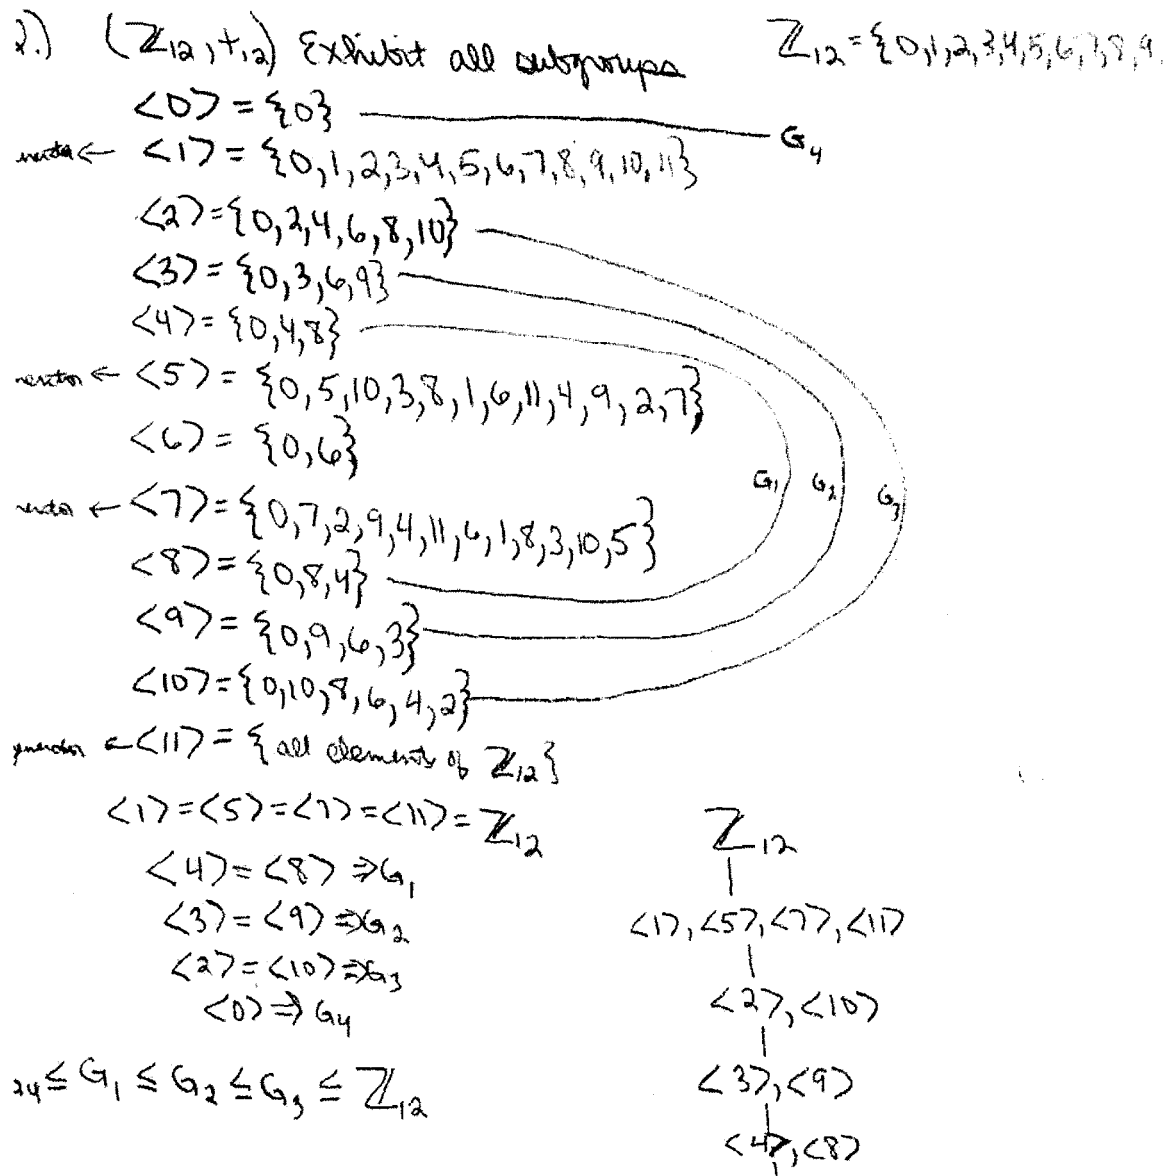 2.) (ℤ₁₂, +₁₂) Exhibit all subgroups ℤ₁₂ = {0,1,2,3,4,5,6,7,8,9,
<0> = {0} G₄
← <1> = {0,1,2,3,4,5,6,7,8,9,10,11}
<2> = {0,2,4,6,8,10}
<3> = {0,3,6,9}
<4> = {0,4,8}
← <5> = {0,5,10,3,8,1,6,11,4,9,2,7}
<6> = {0,6}
G₁ G₂ G₃
← <7> = {0,7,2,9,4,11,6,1,8,3,10,5}
<8> = {0,8,4}
<9> = {0,9,6,3}
<10> = {0,10,8,6,4,2}
generator ← <11> = {all elements of ℤ₁₂}
<1> = <5> = <7> = <11> = ℤ₁₂
<4> = <8> ⇒ G₁
<3> = <9> ⇒ G₂
<2> = <10> ⇒ G₃
<0> ⇒ G₄
≤ G₁ ≤ G₂ ≤ G₃ ≤ ℤ₁₂
ℤ₁₂
<1>, <5>, <7>, <11>
<2>, <10>
<3>, <9>
<4>, <8>